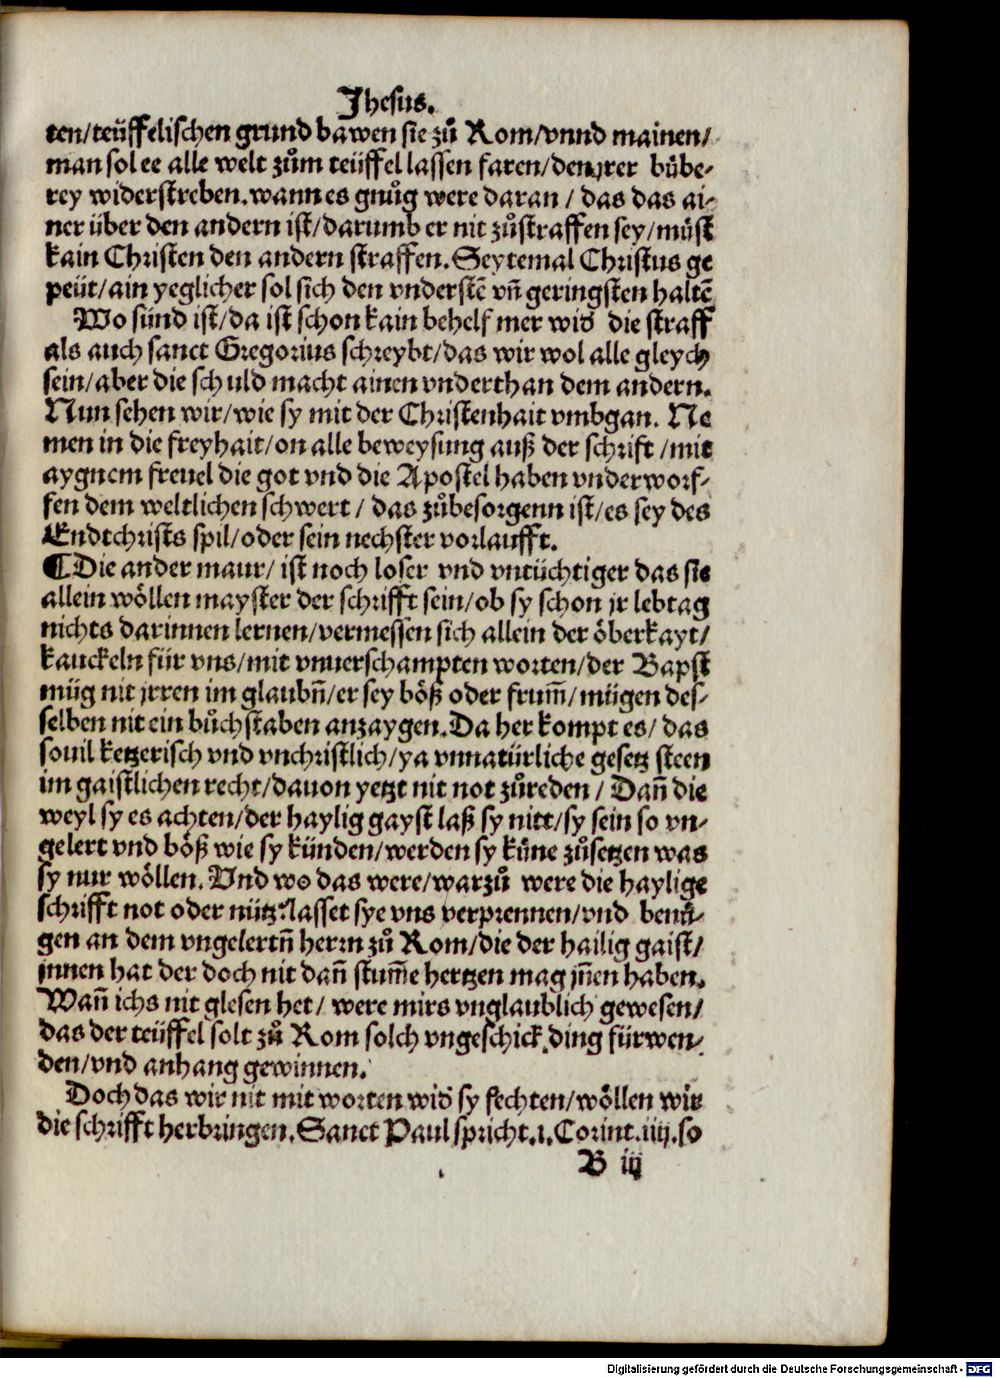 Jhesus.
ten/teüffelischen grund bawen sie zů Rom/vnnd mainen/
man sol ee alle welt zům teüffel lassen faren/den jrer bübe-
rey widerstreben.wann es gnůg were daran / das das ai-
ner über den andern ist/darumb er nit zůstraffen sey/müst
kain Christen den andern straffen.Seytemal Christus ge
peüt/ain yeglicher sol sich den vnderstē vñ geringsten haltē
Wo sünd ist/da ist schon kain behelf mer wid̕ die straff
als auch sanct Gregorius schreybt/das wir wol alle gleych
sein/aber die schuld macht ainen vnderthan dem andern.
Nun sehen wir/wie sy mit der Christenhait vmbgan. Ne
men in die freyhait/on alle beweysung auß der schrift /mit
aygnem freuel die got vnd die Apostel haben vnderworf-
fen dem weltlichen schwert / das zůbesorgenn ist/es sey des
Endtchrists spil/oder sein nechster vorlaufft.
¶Die ander maur/ ist noch loser vnd vntüchtiger das sie
allein wöllen mayster der schrifft sein/ob sy schon jr lebtag
nichts darinnen lernen/vermessen sich allein der öberkayt/
kauckeln für vns/mit vnuerschampten worten/der Bapst
müg nit jrren im glaubñ/er sey böß oder frum̄/mügen des-
selben nit ein bůchstaben anzaygen.Da her kompt es/das
souil ketzerisch vnd vnchristlich/ya vnnatürliche gesetz steen
im gaistlichen recht/dauon yetzt nit not zůreden / Dañ die
weyl sy es achten/der haylig gayst laß sy nitt/sy sein so vn-
gelert vnd böß wie sy künden/werden sy küne zůsetzen was
sy nur wöllen.Vnd wo das were/warzů were die haylige
schrifft not oder nütz?lasset sye vns verprennen/vnd benů-
gen an dem vngelertñ herrn zů Rom/die der hailig gaist/
jnnen hat der doch nit dañ stum̄e hertzen mag jñen haben.
Wañ ichs nit glesen het/ were mirs vnglaublich gewesen/
das der teüffel solt zů Rom solch vngeschick ding fürwen-
den/vnd anhang gewinnen.
Doch das wir nit mit worten wid̕ sy fechten/wöllen wir
die schrifft herbringen.Sanct Paul spricht.1.Corint.iiij.so
B iij
Digitalisierung gefördert durch die Deutsche Forschungsgemeinschaft - DFG